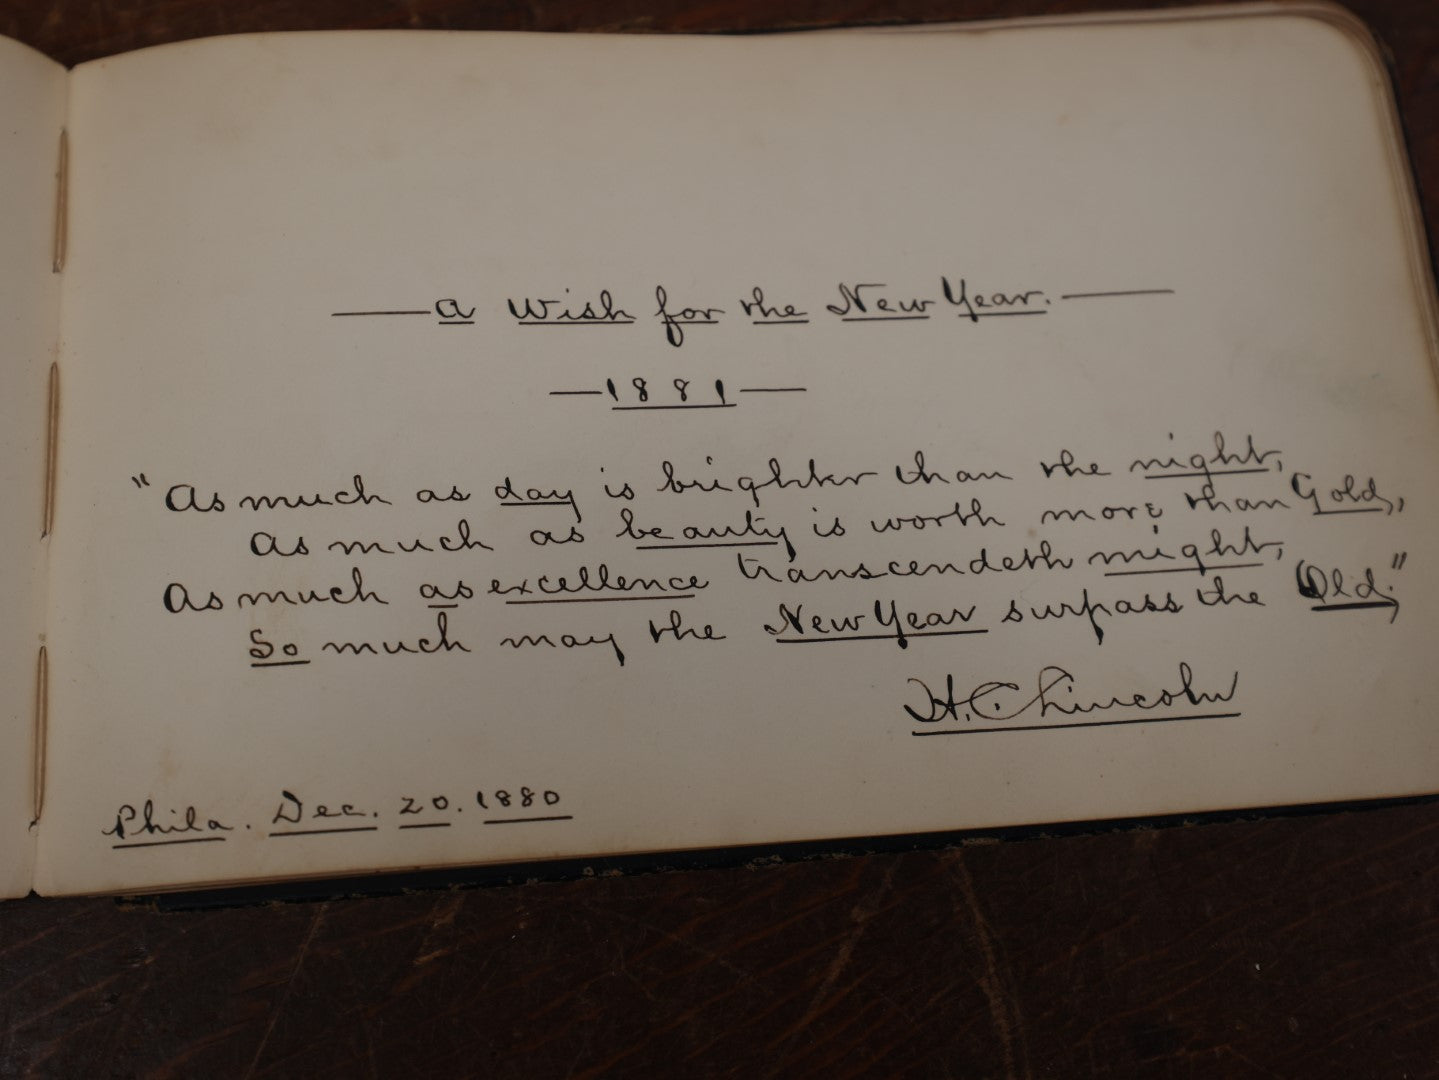 — A Wish for the New Year. —
— 1881 —
"As much as day is brighter than the night,
As much as beauty is worth more than Gold,,
As much as excellence transcendeth might,
So much may the New Year surpass the Old."
H. C.
Phila. Dec. 20. 1880